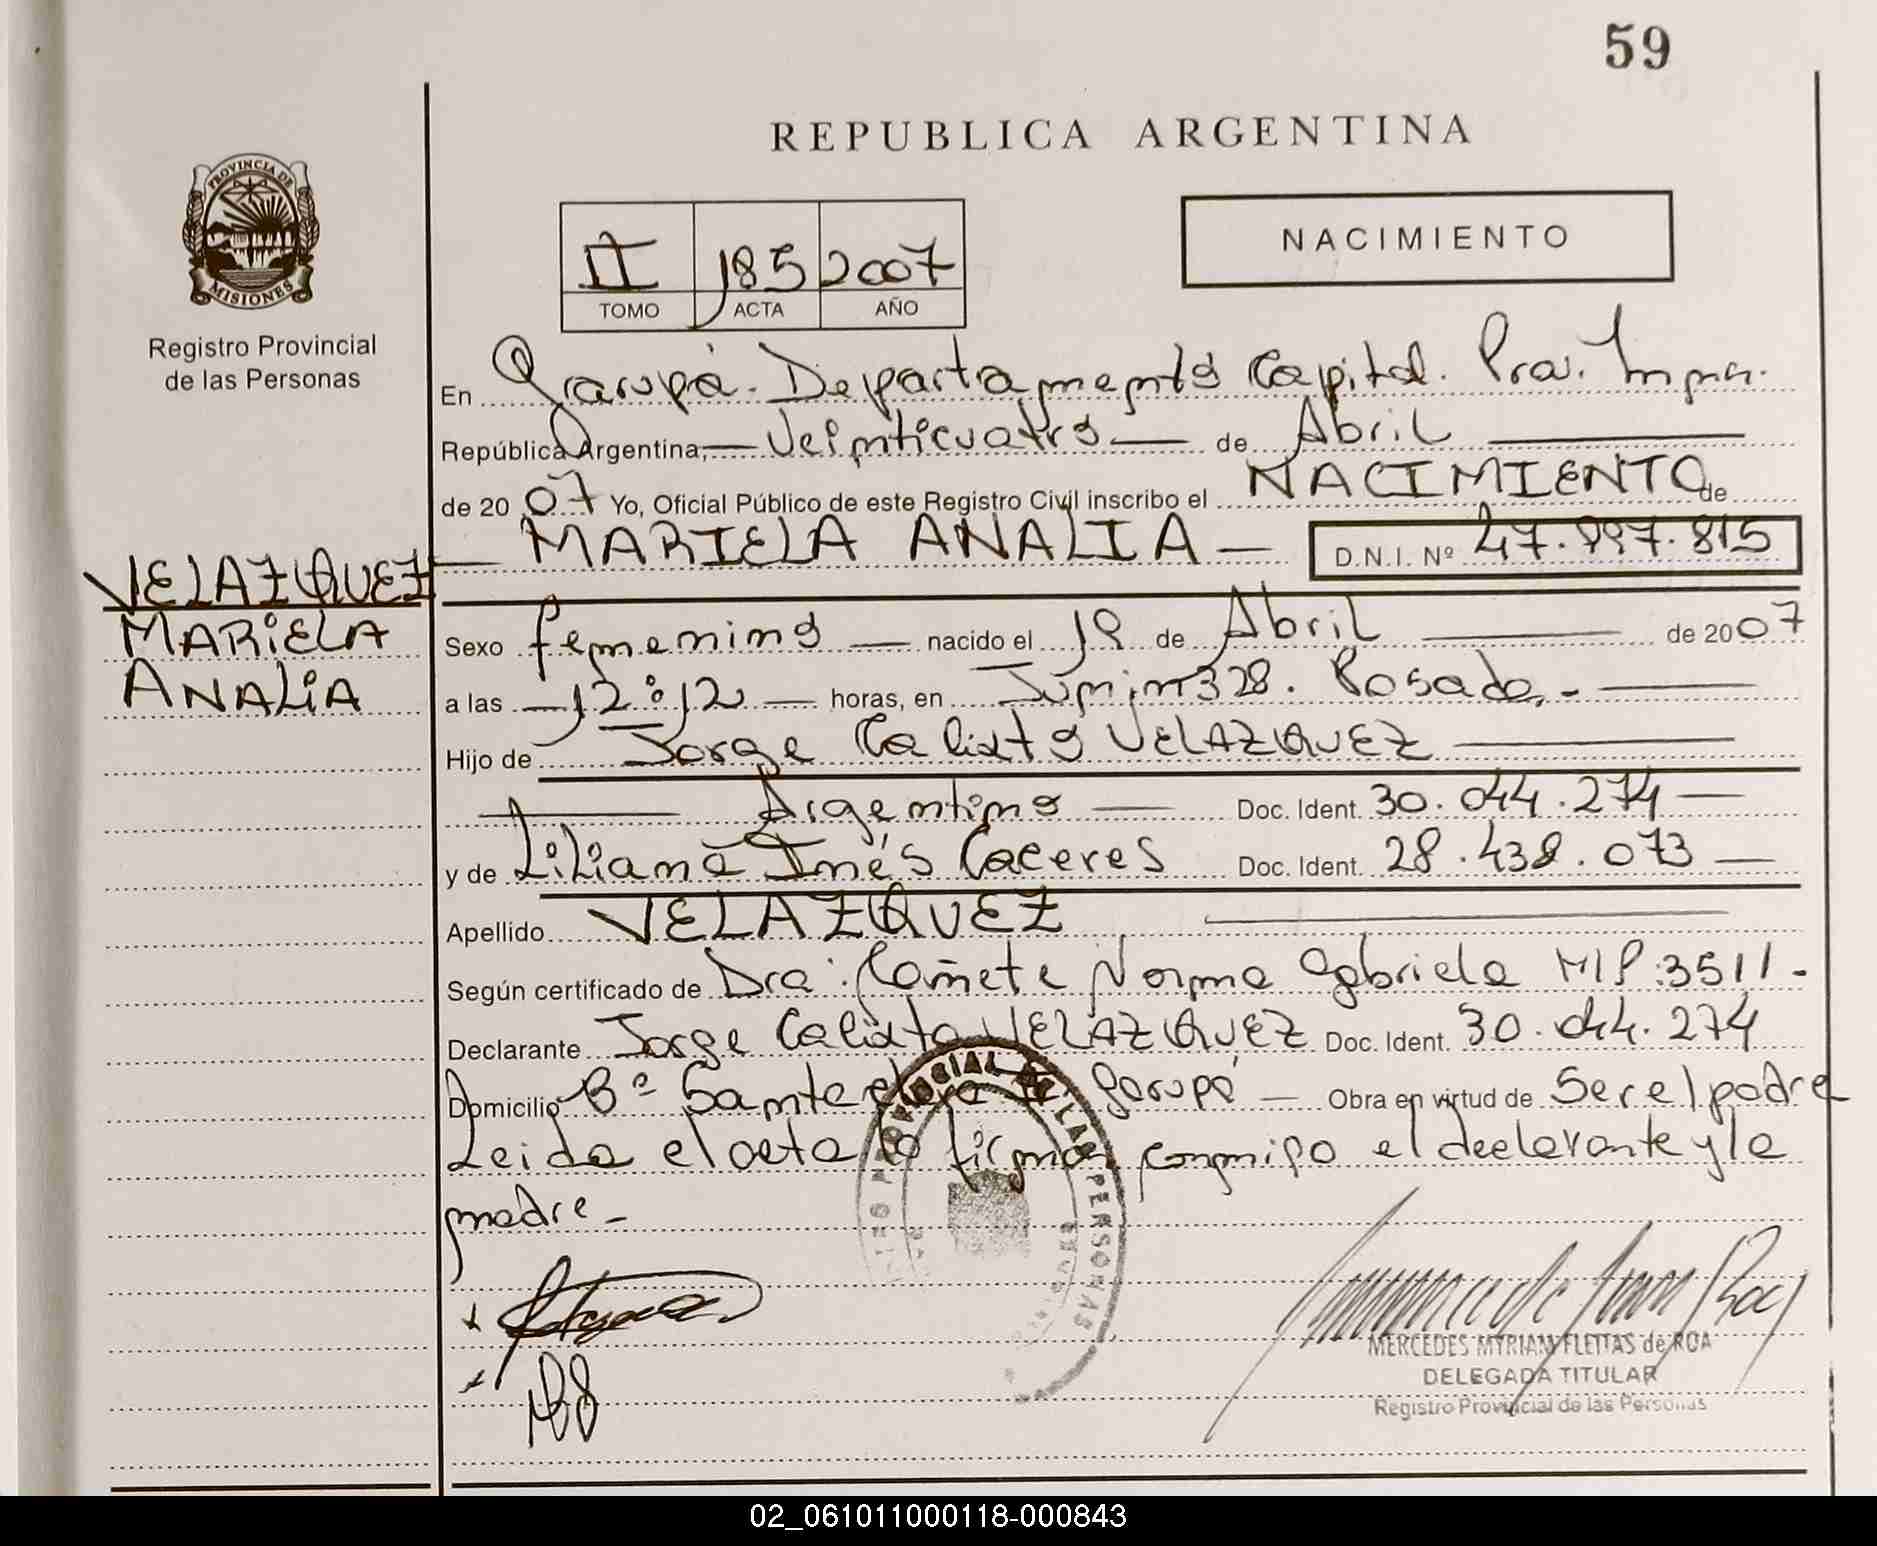 59
REPUBLICA ARGENTINA
PROVINCIA DE
MISIONES
Registro Provincial
de las Personas
II 185 2007
TOMO ACTA AÑO
NACIMIENTO
En Garupá. Departamento Capital. Prov. Mnes.
República Argentina, Veinticuatro de Abril
de 2007 Yo, Oficial Público de este Registro Civil inscribo el NACIMIENTO de
MARIELA ANALIA D.N.I. Nº 47.997.815
VELAZQUEZ
MARIELA
ANALIA
Sexo femenino nacido el 19 de Abril de 2007
a las 12:12 horas, en Junín 328. Posadas.-
Hijo de Jorge Calixto VELAZQUEZ
Argentino Doc. Ident. 30.044.274
y de Liliana Inés Caceres Doc. Ident. 28.438.073
Apellido VELAZQUEZ
Según certificado de Dra. Cañete Norma Gabriela MP:3511.-
Declarante Jorge Calixto VELAZQUEZ Doc. Ident. 30.044.274
Domicilio Bº Santa Garupá Obra en virtud de Ser el padre
Leida el acta la firman conmigo el declarante y la
madre -
PROVINCIAL DE LAS PERSONAS
MERCEDES MYRIAM FLEITAS de ROA
DELEGADA TITULAR
Registro Provincial de las Personas
02_061011000118-000843